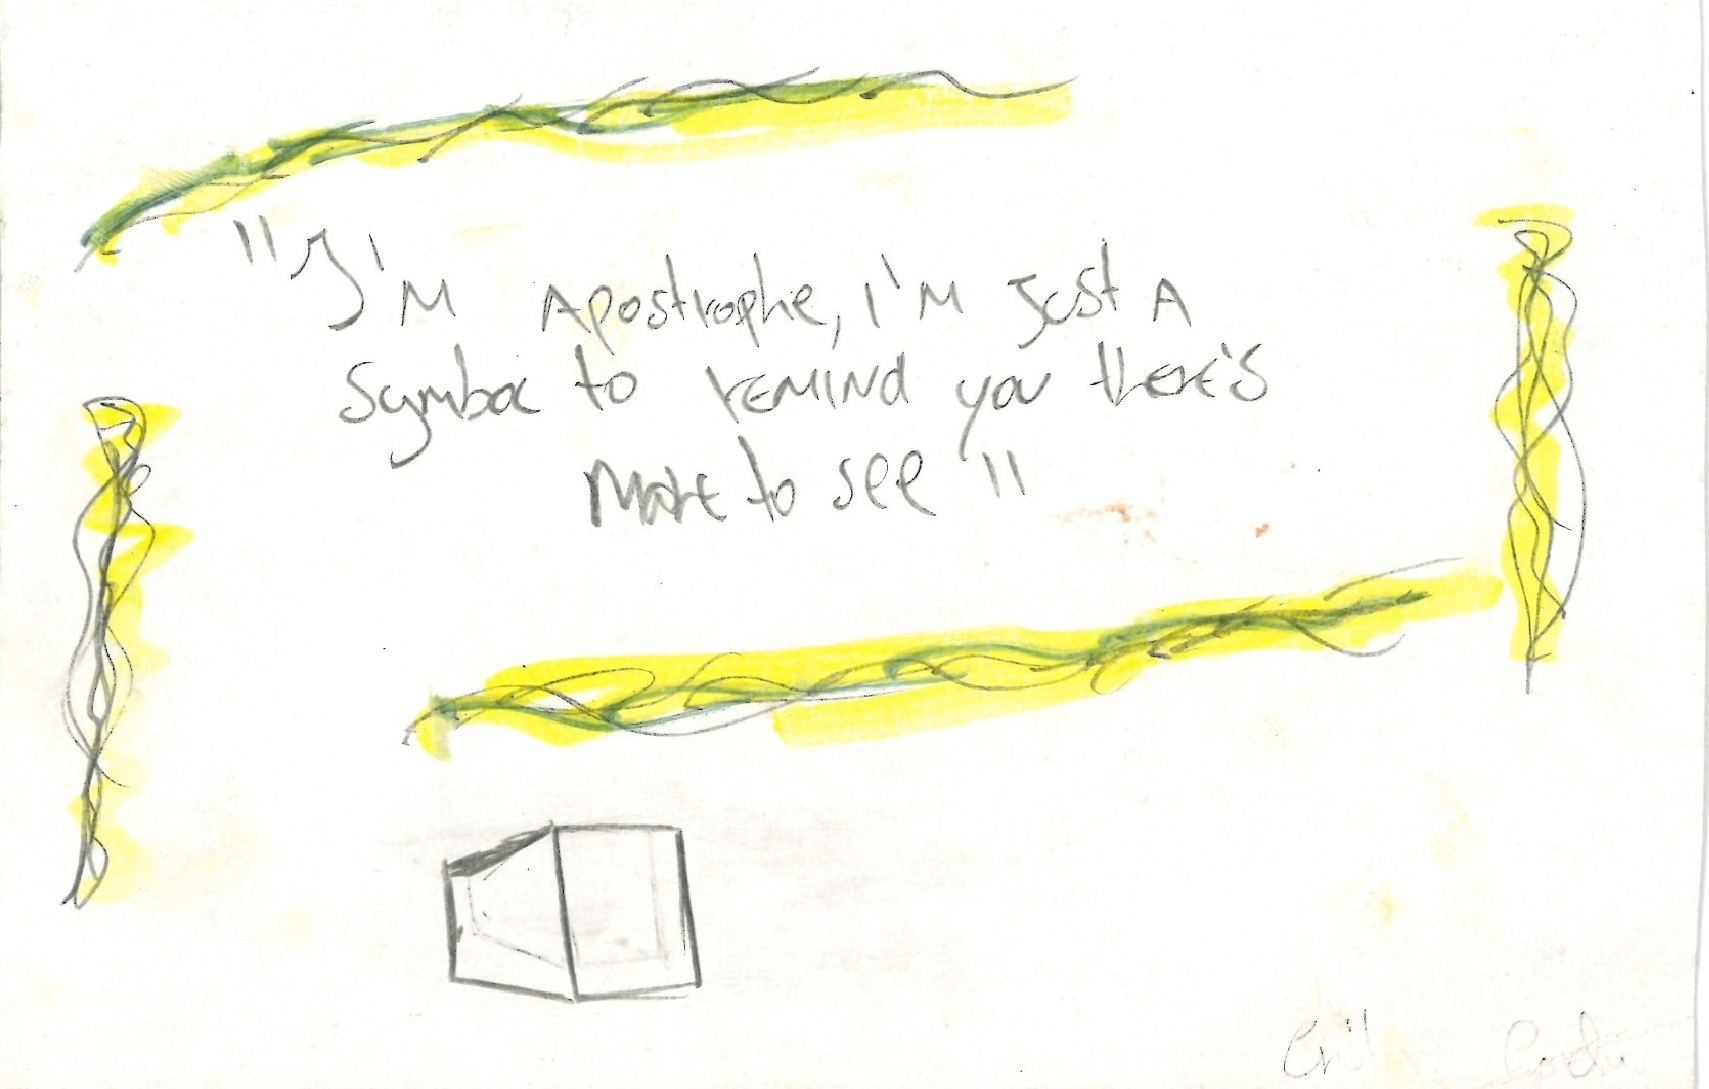 "I'm Apostrophe, I'm just A
symbol to remind you there's
more to see"